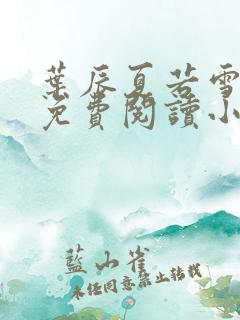 葉辰夏若雪
免費閱讀小
藍山雀
未经同意禁止转载